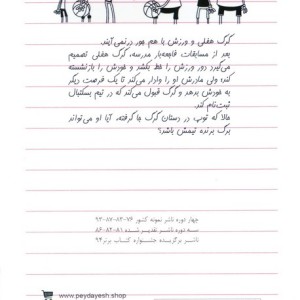 گرگ هفلی و ورزش با هم جور درنمی‌آیند.
بعد از مسابقات فاجعه‌بار مدرسه، گرگ هفلی تصمیم
می‌گیرد دور ورزش را خط بکشد و خودش را بازنشسته
کند؛ ولی مادرش او را وادار می‌کند تا یک فرصت دیگر
به خودش بدهد و گرگ قبول می‌کند که در تیم بسکتبال
ثبت‌نام کند.
حالا که توپ در دستان گرگ جا گرفته، آیا او می‌تواند
برگ برنده تیمش باشد؟
چهار دوره ناشر نمونه کشور ۷۶-۸۲-۸۷-۹۳
سه دوره ناشر تقدیر شده ۸۱-۸۲-۸۶
ناشر برگزیده جشنواره کتاب برتر ۹۴
www.peydayesh.shop